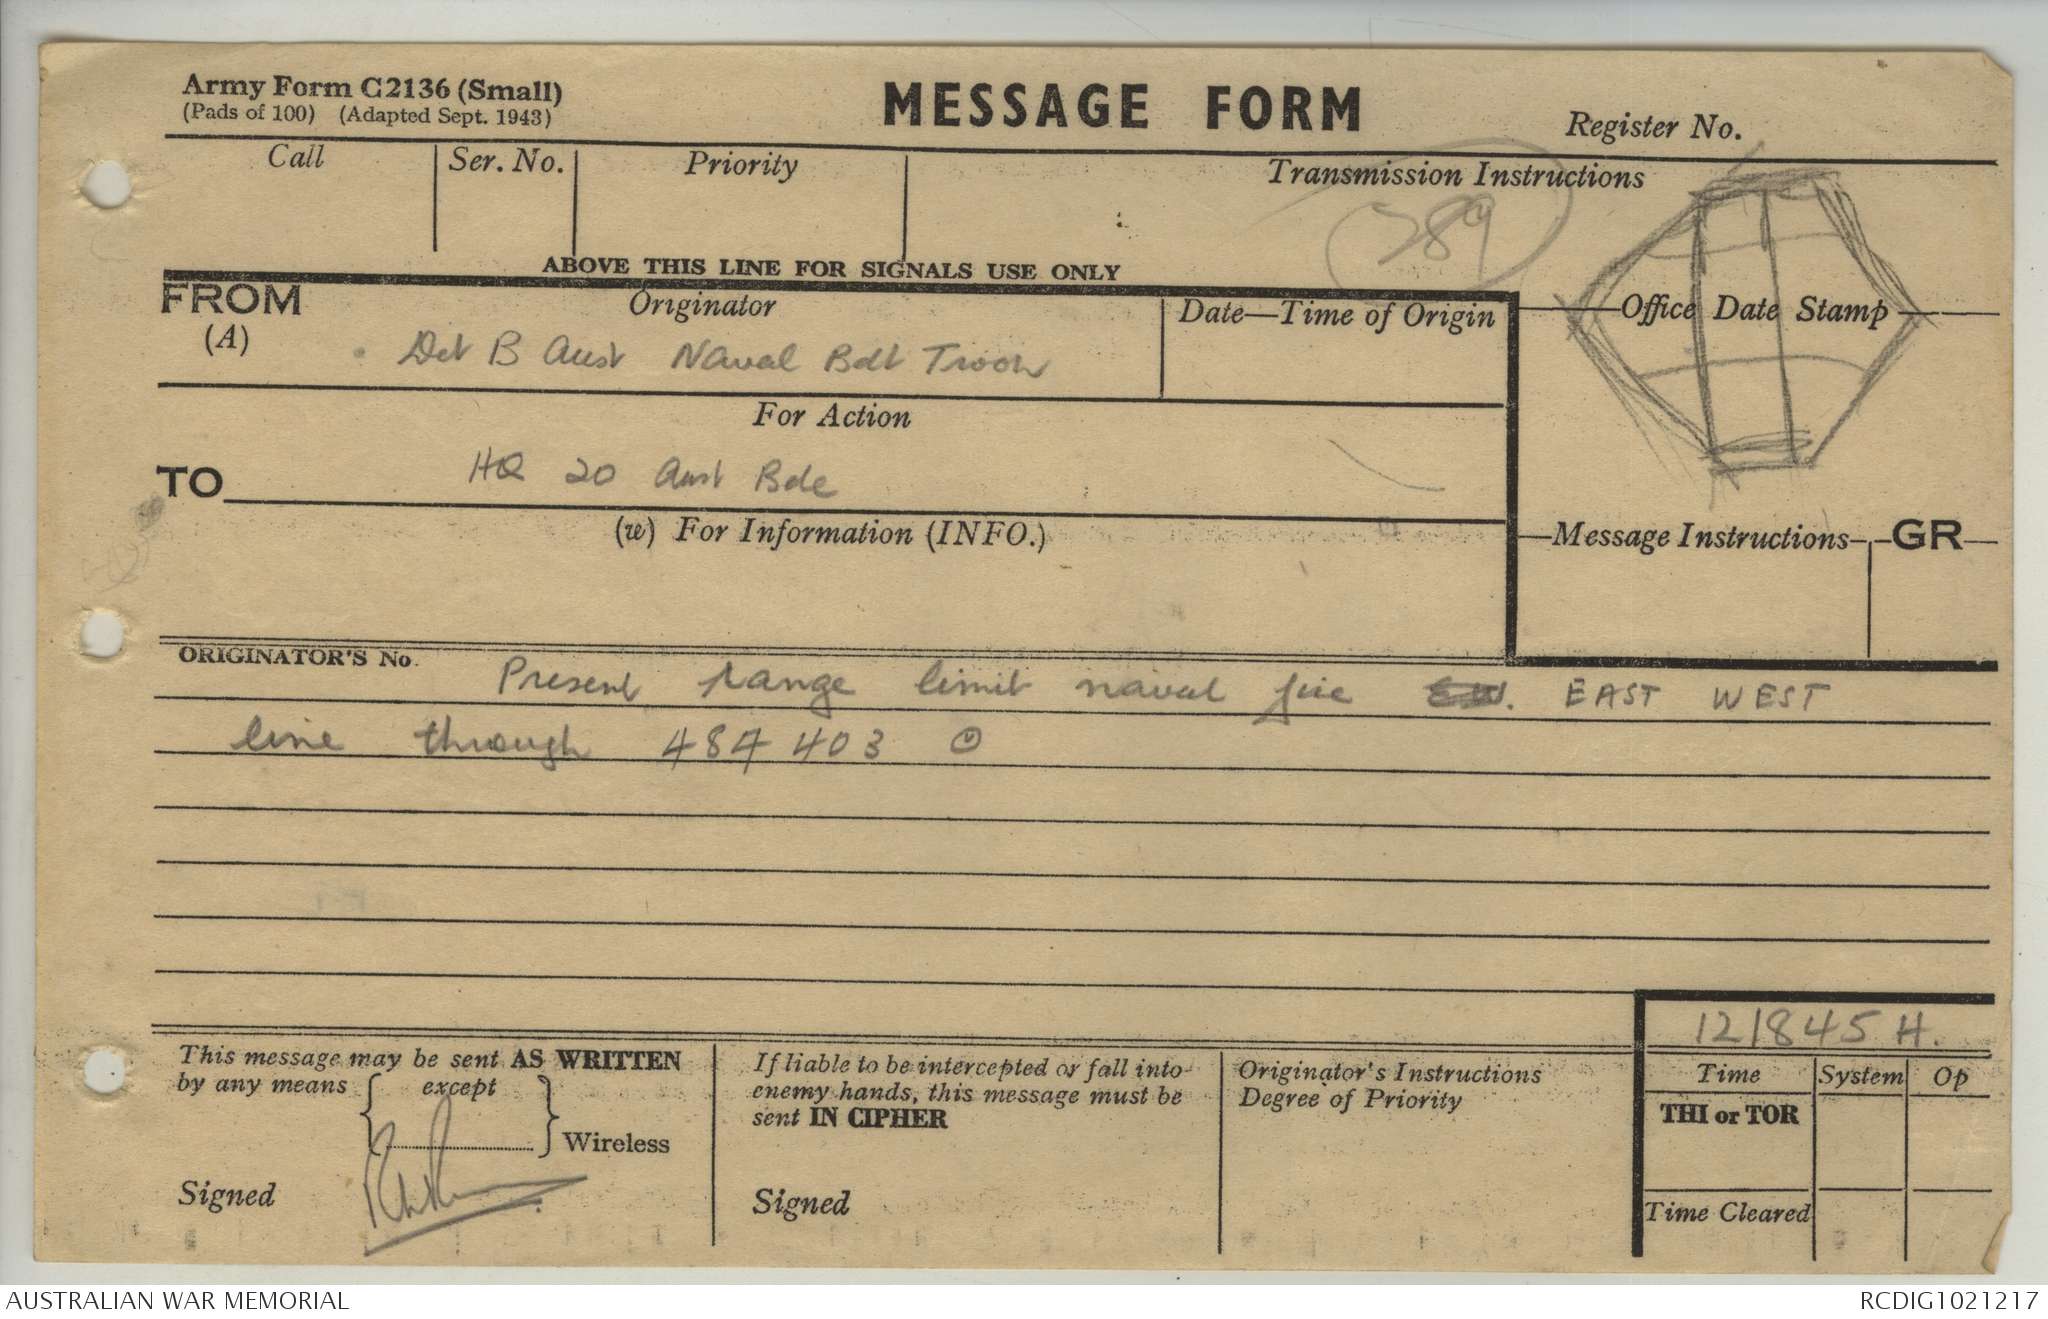 Army Form C2136 (Small)
(Pads of 100) (Adapted Sept. 1943)
MESSAGE FORM
Register No.
Call
Ser. No.
Priority
Transmission Instructions
389
ABOVE THIS LINE FOR SIGNALS USE ONLY
FROM
(A)
Originator
Date—Time of Origin
Office Date Stamp
Det B Aust Naval Bdt Troop
For Action
TO
HQ 20 Aust Bde
(w) For Information (INFO.)
Message Instructions
GR
ORIGINATOR'S No.
Present range limit naval fire EW. EAST WEST
line through 484403
This message may be sent AS WRITTEN
by any means { except } Wireless
Signed
If liable to be intercepted or fall into
enemy hands, this message must be
sent IN CIPHER
Signed
Originator's Instructions
Degree of Priority
121845 H.
Time
System
Op
THI or TOR
Time Cleared
AUSTRALIAN WAR MEMORIAL
RCDIG1021217